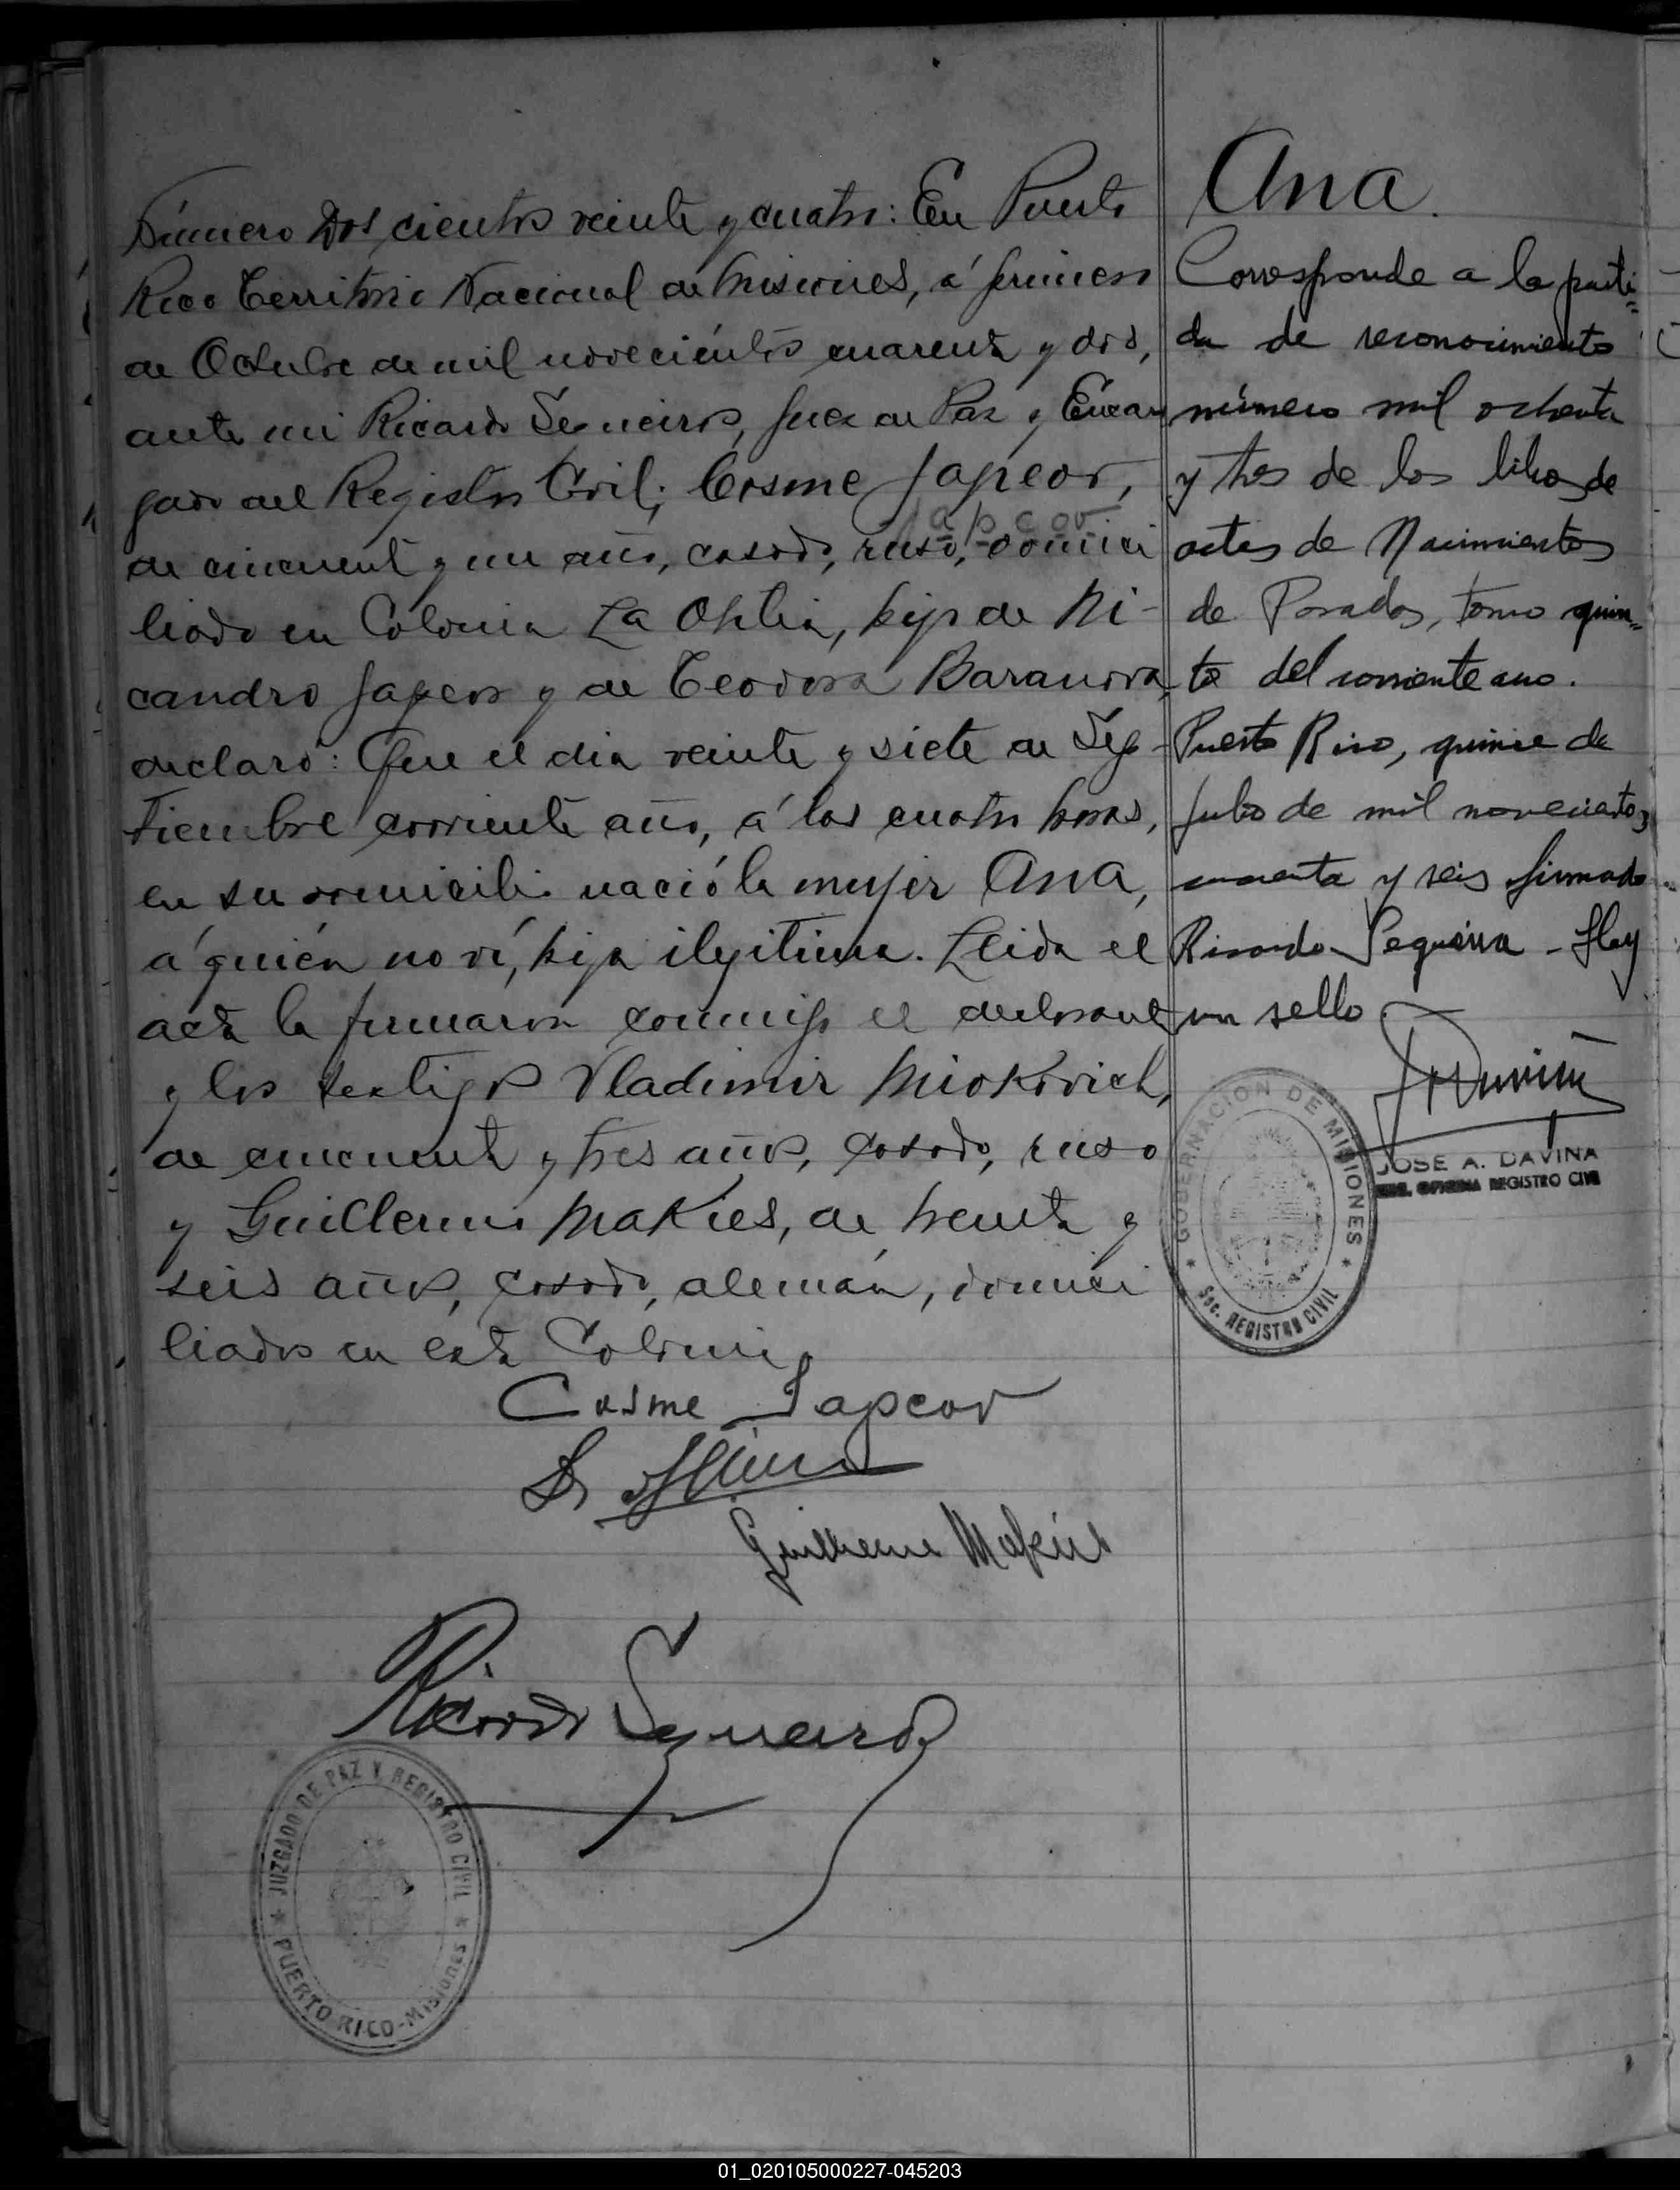 Número Dos cientos veinte y cuatro: En Puerto
Rico Territorio Nacional de Misiones, á primero
de Octubre de mil novecientos cuarenta y dos,
ante mi Ricardo Sequeiros, Juez de Paz y Encar
gado del Registro Civil; Cosme Japcov,
Japcov
de cincuenta y un año, casado, ruso, domici
liado en Colonia La Otilia, hijo de Ni-
candro Japcov y de Teodora Baranova,
declaró: Que el dia veinte y siete de Sep-
tiembre corriente año, á las cuatro horas,
en su domicilio nació la mujer Ana,
á quién no ví, hija ilegitima. Leida el
acta la firmaron conmigo el declarante
y los testigos Vladimir Miokovich,
de cincuenta y tres años, casado, ruso
y Guillermo Makies, de treinta y
seis años, casado, alemán, domici
liados en esta Colonia.
Cosme Japcov
Guilherme
Ricardo Sequeiros
JUZGADO DE PAZ Y REGISTRO CIVIL
PUERTO RICO-MISIONES
Ana.
Corresponde a la parti=
da de reconocimiento
número mil ochenta
y tres de los libros de
actas de Nacimientos
de Posadas, tomo quin=
to del corriente ano.
Puerto Rico, quince de
Julio de mil novecientos
cuarenta y seis firmado.
Ricardo Sequeira - Hay
un sello
GOBERNACION DE MISIONES
Sec. REGISTRO CIVIL
JOSE A. DAVIÑA
OFICINA REGISTRO CIVIL
01_020105000227-045203